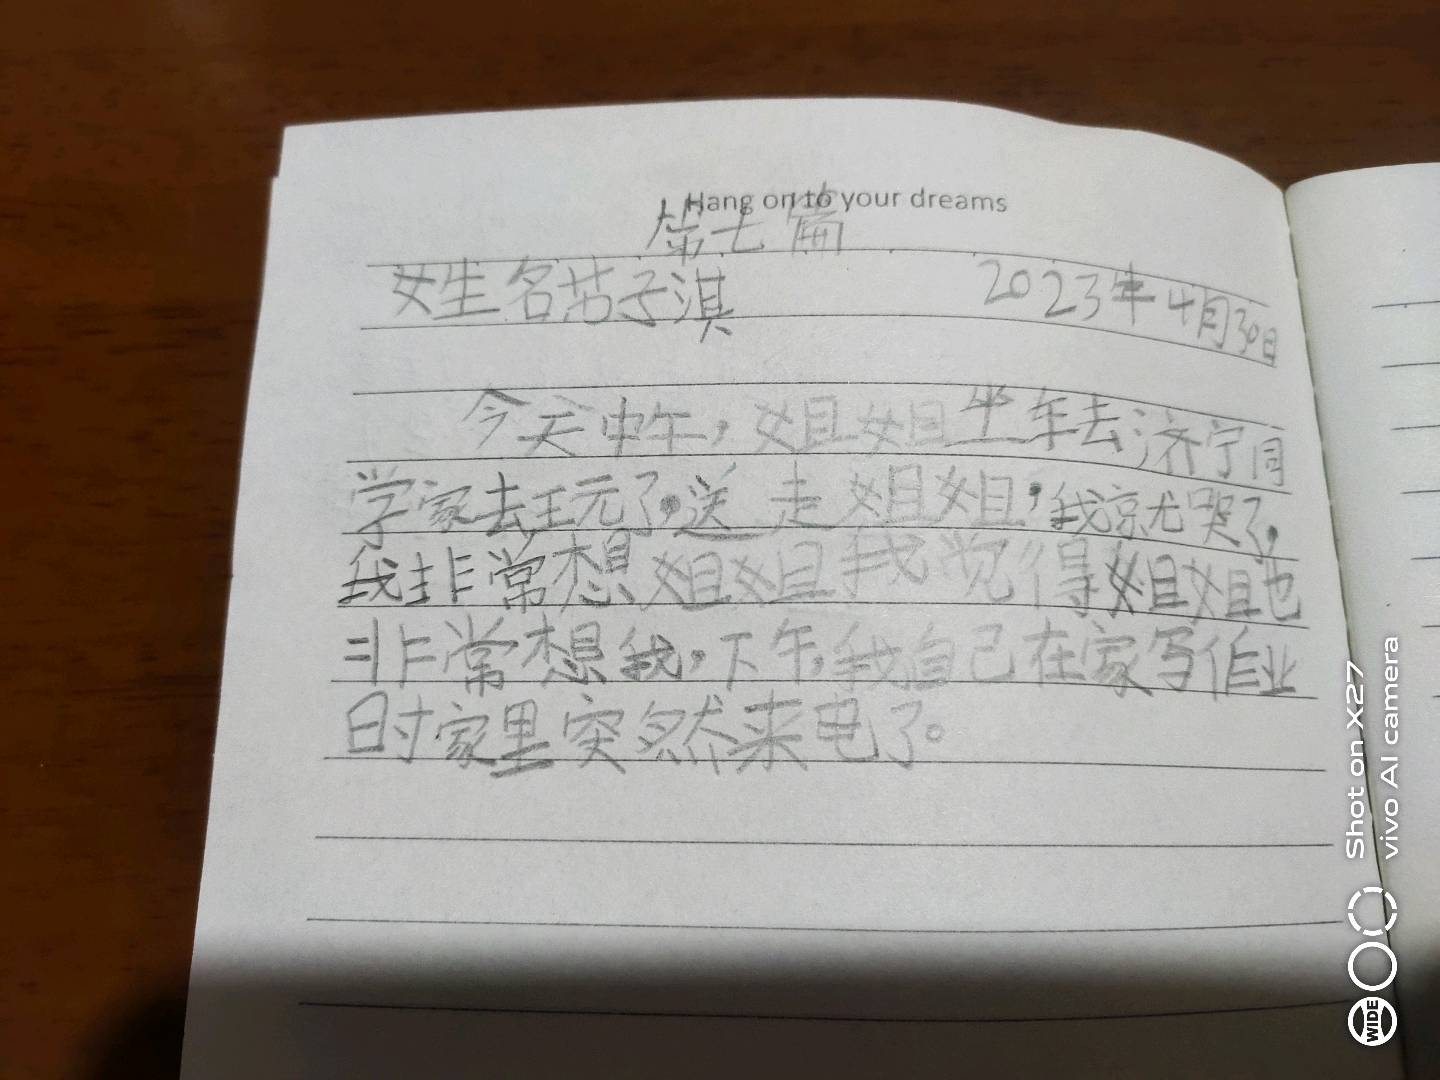 Hang on to your dreams
第七篇
姓名苦子淇 2023年4月30日
今天中午，姐姐坐车去济宁同
学家去玩了。送走姐姐，我就哭了。
我非常想姐姐我觉得姐姐也
非常想我，下午，我自己在家写作业
时家里突然来电了。
Shot on X27
vivo AI camera
WIDE